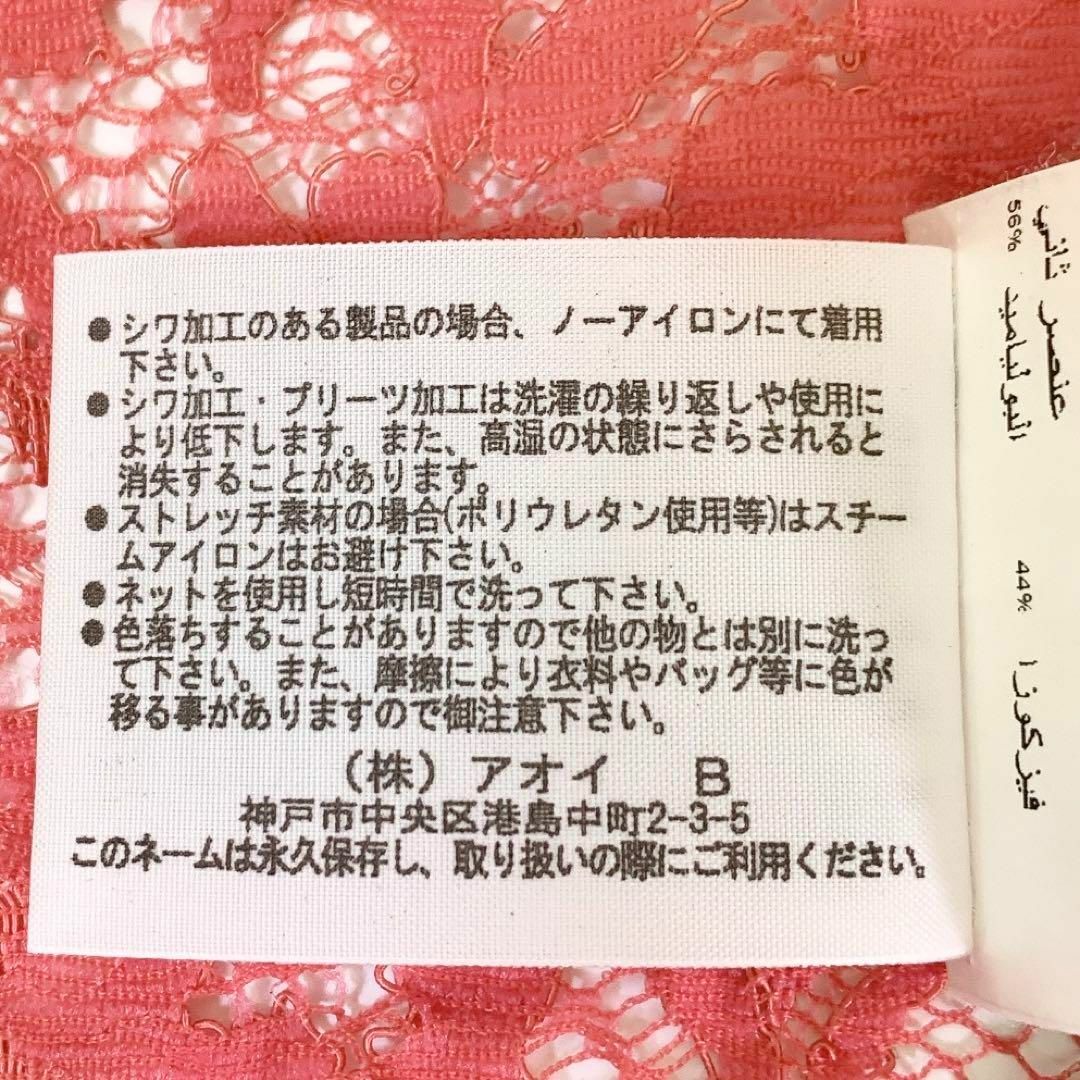 ●シワ加工のある製品の場合、ノーアイロンにて着用
下さい。
●シワ加工・プリーツ加工は洗濯の繰り返しや使用に
より低下します。また、高湿の状態にさらされると
消失することがあります。
●ストレッチ素材の場合(ポリウレタン使用等)はスチー
ムアイロンはお避け下さい。
●ネットを使用し短時間で洗って下さい。
●色落ちすることがありますので他の物とは別に洗っ
て下さい。また、摩擦により衣料やバッグ等に色が
移る事がありますので御注意下さい。
(株)アオイ B
神戸市中央区港島中町2-3-5
このネームは永久保存し、取り扱いの際にご利用ください。
عنصر ثانوي
56%
44%